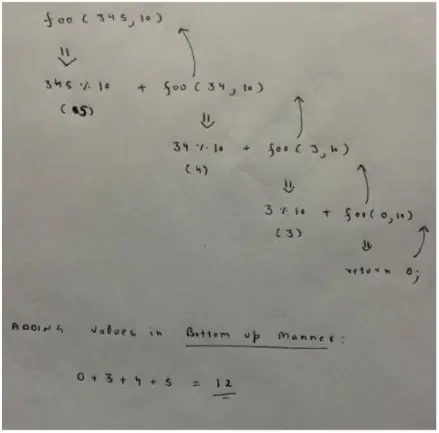 foo ( 345, 10)
345 % 10 + foo ( 34, 10)
(5)
34 % 10 + foo ( 3, 10)
(4)
3 % 10 + foo( 0, 10)
(3)
return 0;
ADDING values in Bottom up manner:
0 + 3 + 4 + 5 = 12